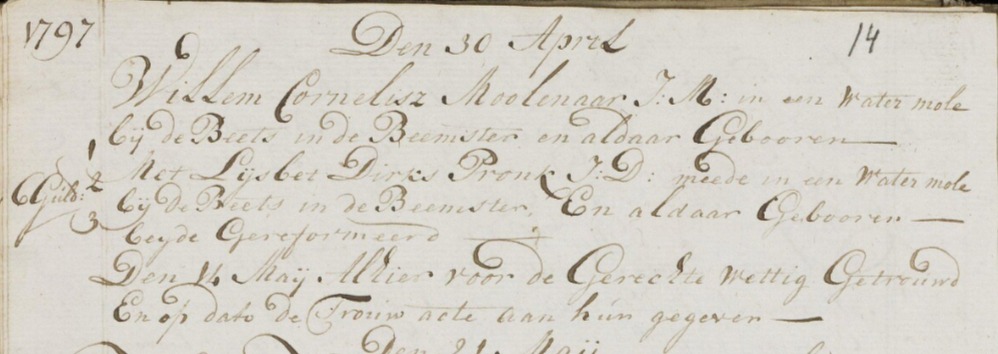 1797 Den 30 April 14
Willem Cornelisz Moolenaar J: M: in een Water mole
bij de Beets in de Beemster en aldaar Gebooren
1
Met Lijsbet Dirks Pronk J: D: meede in een Water mole
6 Guld: 2
bij de Beets in de Beemster, En aldaar Gebooren
3
beyde Gereformeerd
Den 14 Maij Alhier voor de Gerechte Wettig Getrouwd
En op dato de Trouw acte aan hún gegeven
Den 21 Maij